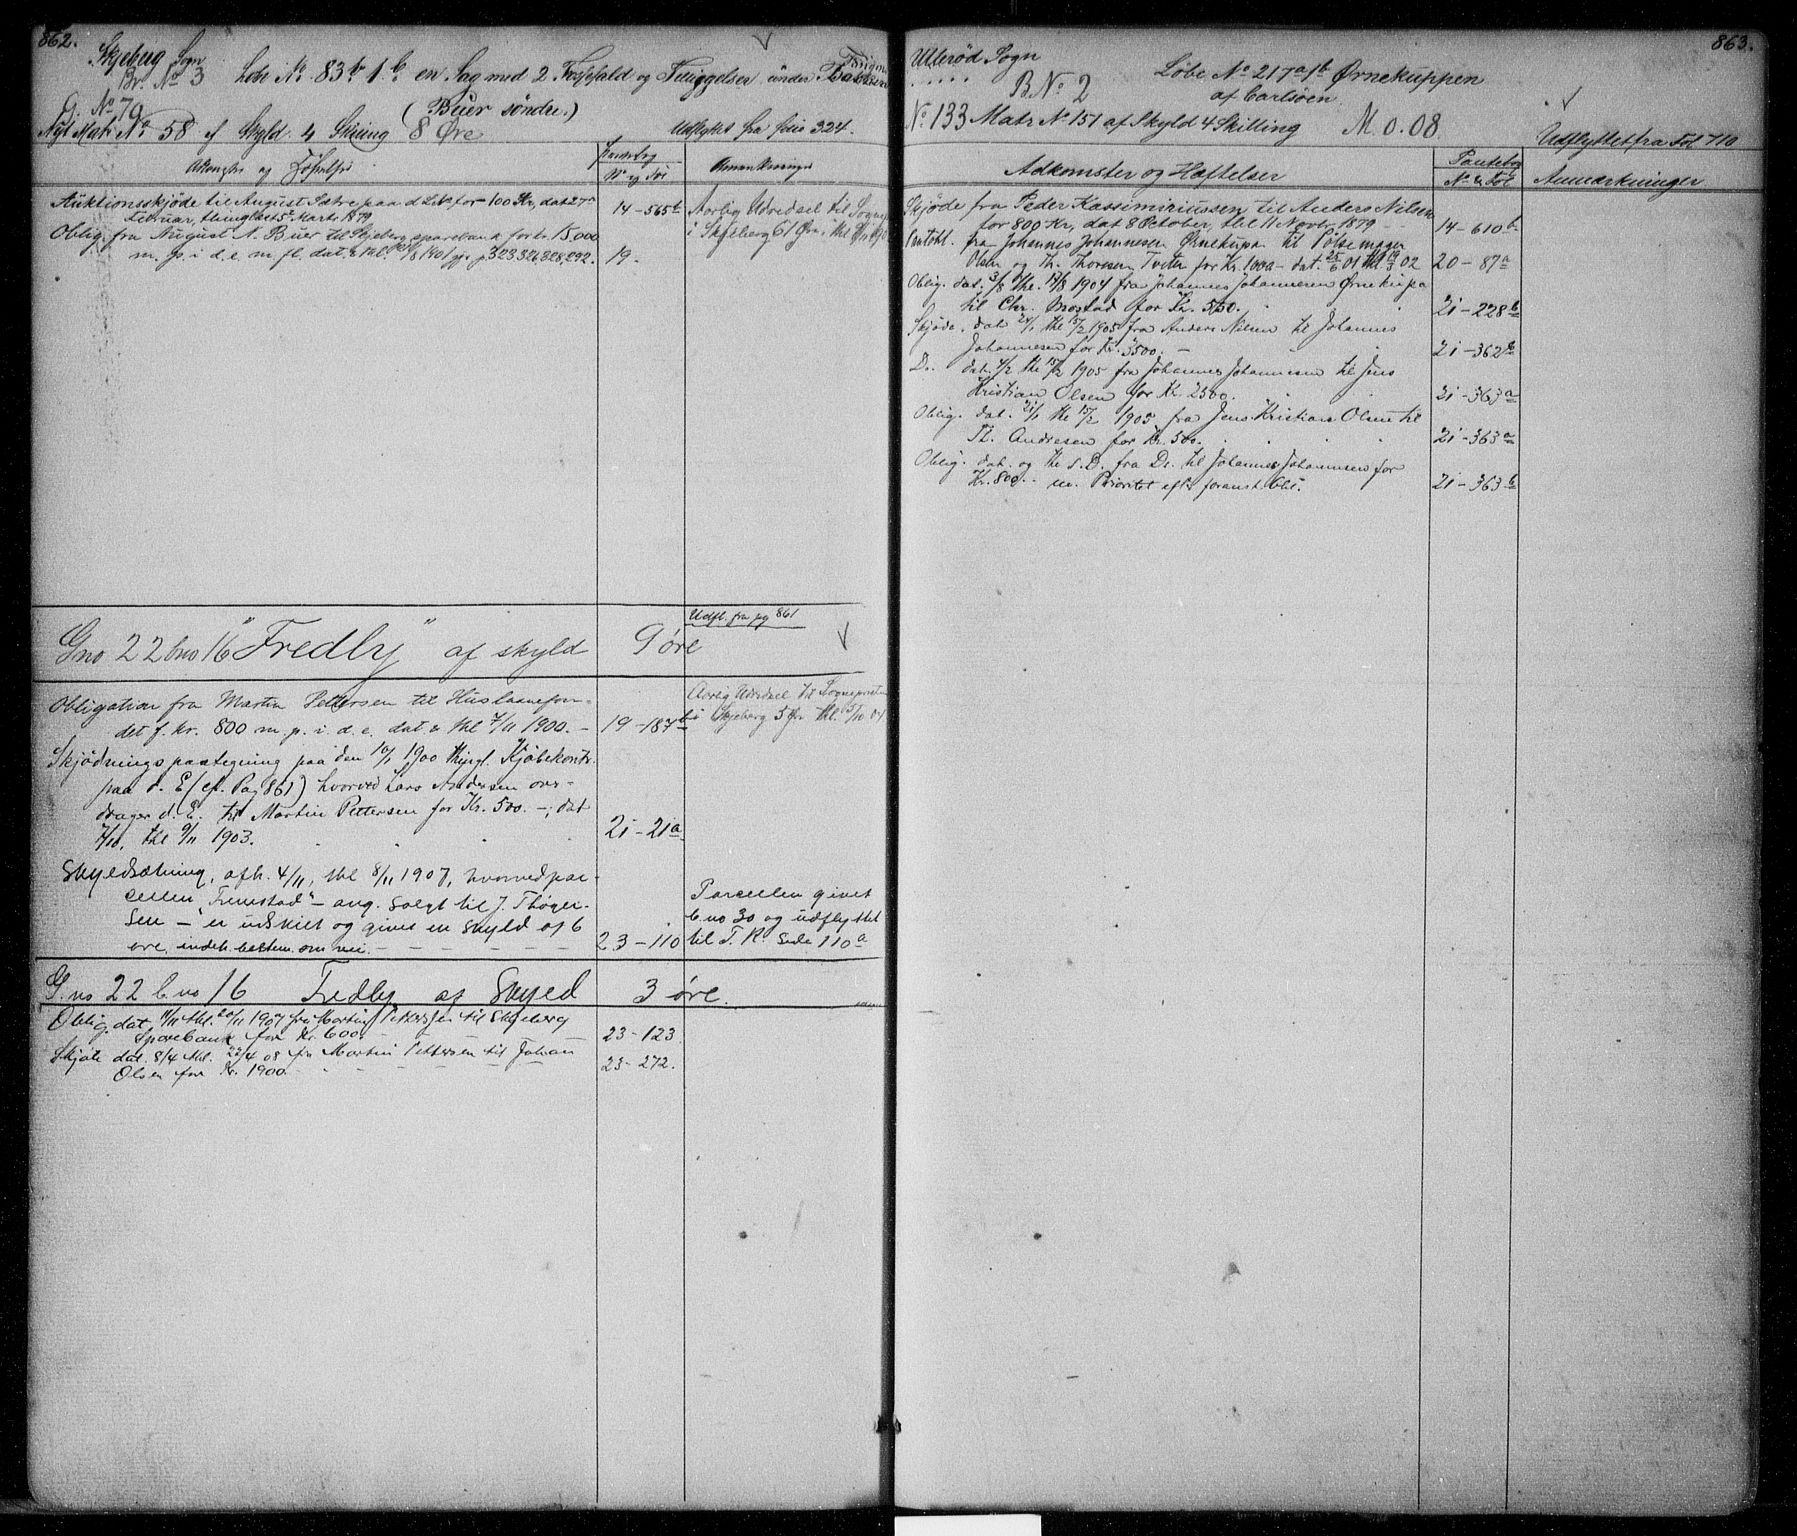 862.
Skjeberg Sogn
Br. No 3 Løbe No 83b 1b en Sag med 2 Fossefald og Tuggelser under
G. No 79 (Buer søndre.)
Nyt Matr No 58 af Skyld. 4 Skilling 8 Øre Udflyttet fra folio 324.
Adkomster og Hæftelser
No og Fol
Anmærkninger
Auktionsskjøde til August Sætre paa d. Lb. No for 100 Kr, dat 27de
Februar, thinglæst 5te Marts 1879
14-565b
Aarlig Udredsel til Sognep
i Skjeberg 61 Øre
Oblig. fra August N. Buer til Skjeberg sparebank for kr. 15,000
m. p. i d. e. m fl. dat. & thl. 1901 pg 323, 326, 328, 292.
19.
Udfl. fra pg 861
Gno 22 bno 16 "Fredby" af skyld 9 øre
Obligation fra Martin Pettersen til Huslaanefon-
det f. kr. 800 m. p. i d. e. dat & thl 7/11 1900. -
19-187b
Aarlig Udredsel til Sognepresten
i Skjeberg 5 Øre thl. 5/10 04
Skjødningspaategning paa den 10/1 1900 thingl. Kjøbekontr.
paa d. E (cf. Pag 861) hvorved Lars Andersen over-
drager d. E. til Martin Pettersen for Kr. 500. -; dat
7/10, thl 9/11 1903.
21-21a
Skyldsætning, afh. 4/11, thl 8/11 1907, hvorved par-
cellen "Fremstad" - ang. solgt til J. Thøger-
sen - er udskilt og givet en skyld af 6
øre, indeh. bestem. om vei. - - - -
23-110
Parcellen givet
b.no 30 og udflyttet
til T. R. side 110a
G. no 22 b. no 16 Fredby af Skyld 3 øre.
Oblig. dat 19/11 thl. 20/11 1907 fra Martin Pettersen til Skjeberg
Sparebank for Kr. 600. - -
23-123
Skjøte dat. 8/4 thl. 22/4 08 fra Martin Pettersen til Johan
Olsen for Kr. 1900. - - - -
23-272.
863.
Ullerød Sogn
B No 2 Løbe No 217a 1b Ørnekuppen
af Carlsøen
No 133 Matr No 151 af Skyld 4 Skilling M. 0.08. Udflyttet fra Fol 710
Adkomster og Hæftelser
Pantebog
No & Fol
Anmærkninger
Skjøde fra Peder Kassimiriussen til Anders Nilsen
for 800 Kr, dat 8 October, thl 11 Novbr 1879 -
14-610b
Pantobl. fra Johannes Johannesen Ørnekupa til Pølsemager
Olsen og Th. Thoresen Tveter for Kr. 1000 - dat. 25/6 01 thl 19/3 02
20-87a
Oblig. dat. 3/8 thl. 17/8 1904 fra Johannes Johannesen Ørnekupa
til Chr. Mostad for Kr. 550.
21-228b
Skjøde, dat 24/1 thl 15/2 1905 fra Anders Nilsen til Johannes
Johannesen for Kr. 3500. -
21-362b
Do. dat. 4/2 thl 15/2 1905 fra Johannes Johannesen til Jens
Kristian Olsen for Kr. 2500.
21-363a
Oblig. dat. 21/1 thl 15/2 1905 fra Jens Kristian Olsen til
Th. Andresen for Kr. 500.
21-363a
Oblig. dat. og thl s. D. fra Do. til Johannes Johannesen for
Kr. 800. - m. Prioritet efter foranst. Obl.
21-363b